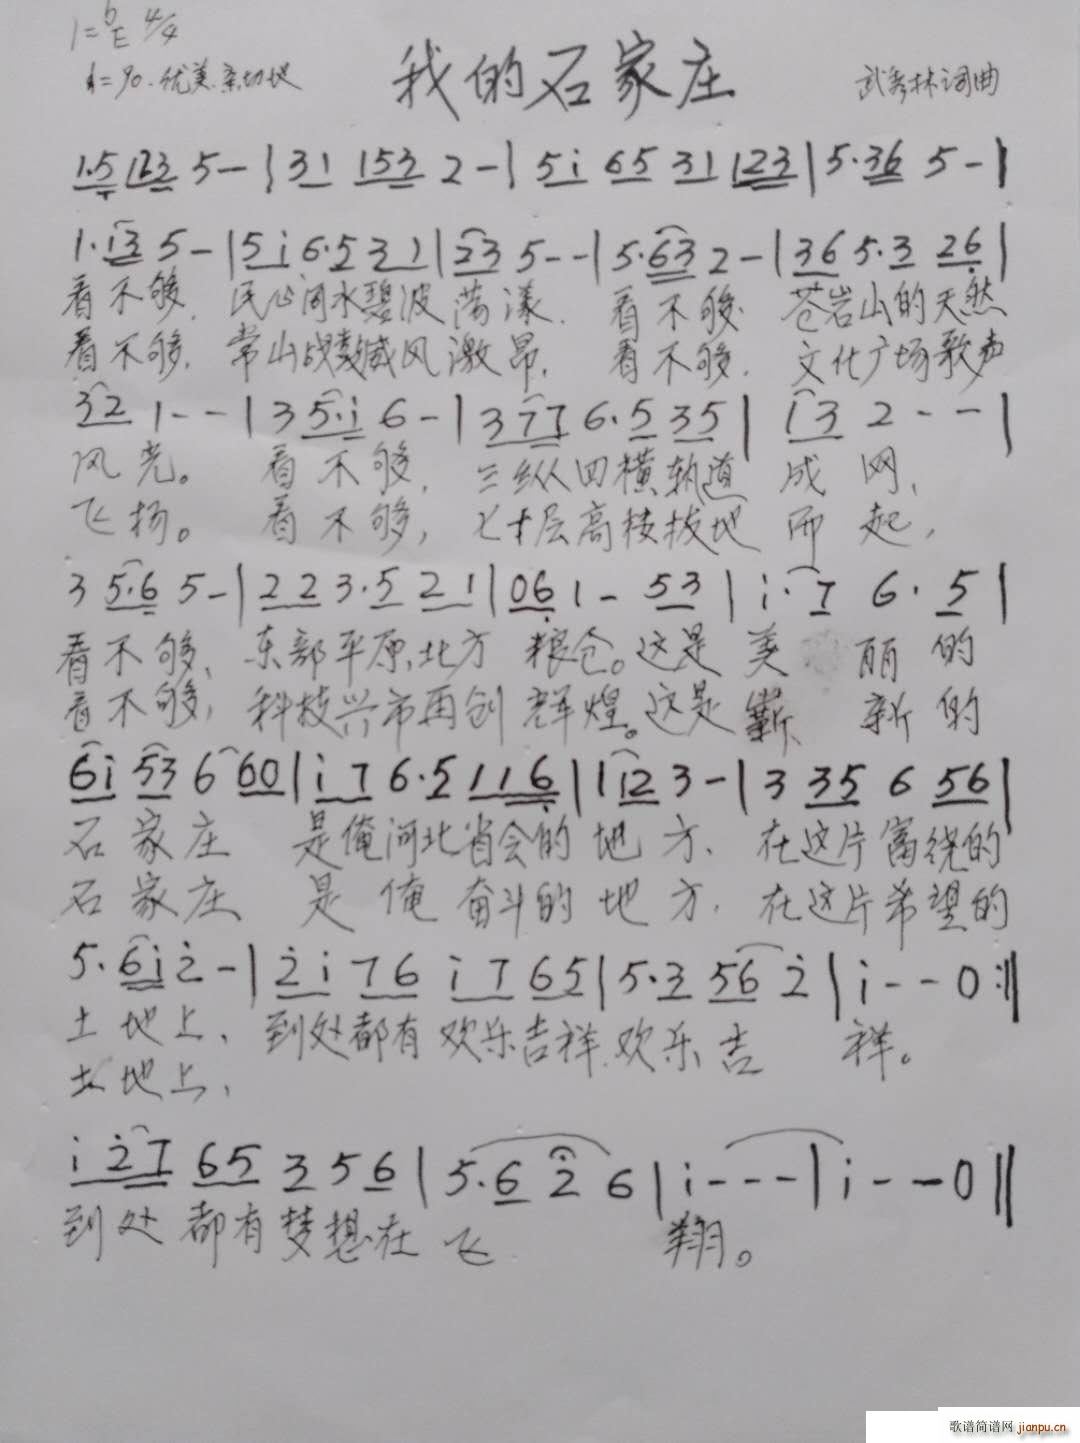 1=♭E 4/4
♩=90.优美亲切地
我的石家庄
武秀林词曲
1·5 123 5-|31 153 2-|5i 65 31 123|5·36 5-|
1·i3 5-|5i 6·5 31|23 5--|5·63 2-|36 5·3 26|
看不够.民心河水碧波荡漾.看不够.苍岩山的天然
看不够.常山战鼓威风激昂.看不够.文化广场歌声
32 1--|3 5·i 6-|377 6·5 35|i3 2--|
风光。看不够,三纵四横轨道成网、
飞扬。看不够,七十层高楼拔地而起,
3 5·6 5-|22 3·5 21|06 1- 53|i·7 6·5|
看不够、东部平原、北方粮仓。这是美丽的
看不够,科技兴市再创辉煌。这是崭新的
6i 53 6 60|i7 6·5 116|1 12 3-|3 35 6 56|
石家庄 是俺河北省会的地方、在这片富绕的
石家庄 是俺奋斗的地方.在这片希望的
5·6i 2-|2i 76 i7 65|5·3 56 2|i--0:‖
土地上、到处都有欢乐吉祥.欢乐吉祥。
土地上,
i 27 65 3 5 6|5·6 2 6|i---|i--0‖
到处都有梦想在飞翔。
歌谱简谱网 jianpu.cn